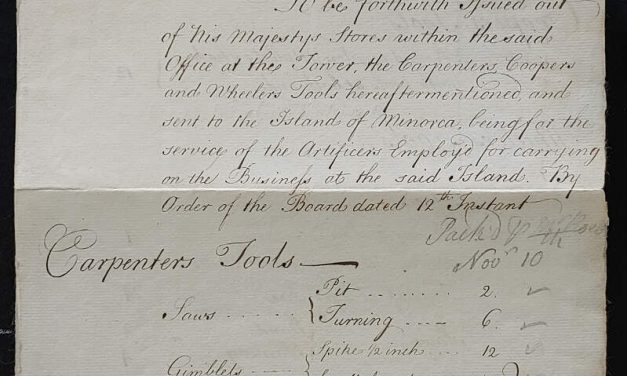 To be forthwith Issued out
of His Majestys Stores within the said
Office at the Tower, the Carpenters, Coopers
and Wheelers Tools hereaftermentioned, and
sent to the Island of Minorca, being for the
service of the Artificers Employ'd for carrying
on the Business at the said Island. By
Order of the Board dated 12th Instant
Pack'd
Carpenters Tools
Nov.r 10
Saws
Pit 2
Turning 6
Gimblets
Spike 1/2 inch 12